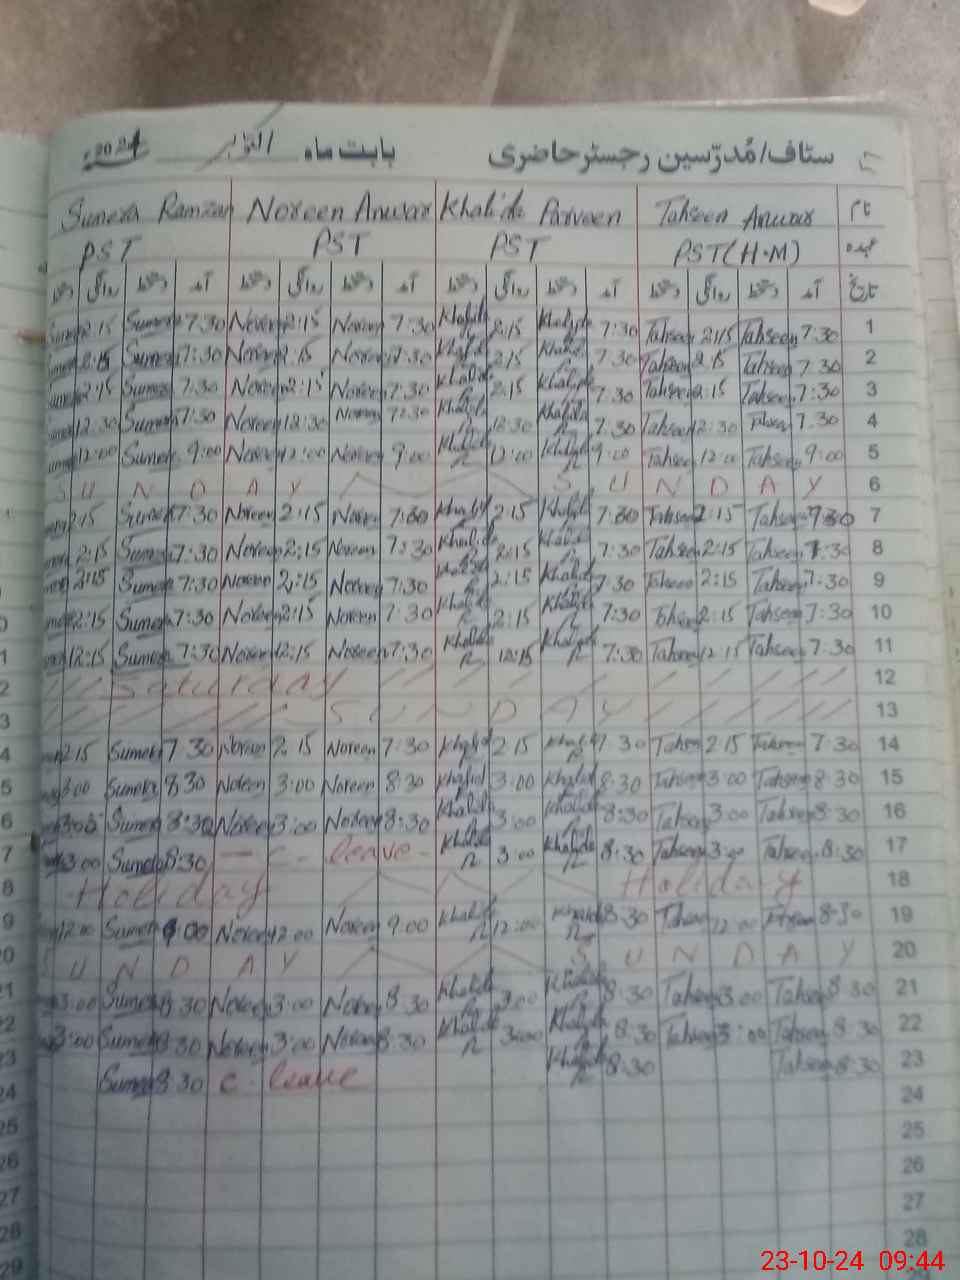 ستاف/مُدرّسین رجسٹر حاضری بابت ماہ اکتوبر 2024
نام Tahseen Anwar Khalida Parveen Noreen Anwar Sumera Ramzan
عہدہ PST(H.M) PST PST PST
تاریخ آمد دستخط روانگی دستخط آمد دستخط روانگی دستخط آمد دستخط روانگی دستخط آمد دستخط روانگی دستخط
1 7:30 Tahseen 2:15 Tahseen 7:30 Khalida 2:15 Khalida 7:30 Noreen 2:15 Noreen 7:30 Sumera 2:15
2 7:30 Tahseen 2:15 Tahseen 7:30 Khalida 2:15 Khalida 7:30 Noreen 2:15 Noreen 7:30 Sumera 2:15
3 7:30 Tahseen 2:15 Tahseen 7:30 Khalida 2:15 Khalida 7:30 Noreen 2:15 Noreen 7:30 Sumera 2:15
4 7:30 Tahseen 12:30 Tahseen 7:30 Khalida 12:30 Khalida 7:30 Noreen 12:30 Noreen 7:30 Sumera 12:30
5 9:00 Tahseen 12:00 Tahseen 9:00 Khalida 12:00 Khalida 9:00 Noreen 12:00 Noreen 9:00 Sumera 12:00
6 SUNDAY SUNDAY
7 7:30 Tahseen 2:15 Tahseen 7:30 Khalida 2:15 Khalida 7:30 Noreen 2:15 Noreen 7:30 Sumera 2:15
8 7:30 Tahseen 2:15 Tahseen 7:30 Khalida 2:15 Khalida 7:30 Noreen 2:15 Noreen 7:30 Sumera 2:15
9 7:30 Tahseen 2:15 Tahseen 7:30 Khalida 2:15 Khalida 7:30 Noreen 2:15 Noreen 7:30 Sumera 2:15
10 7:30 Tahseen 2:15 Tahseen 7:30 Khalida 2:15 Khalida 7:30 Noreen 2:15 Noreen 7:30 Sumera 2:15
11 7:30 Tahseen 12:15 Tahseen 7:30 Khalida 12:15 Khalida 7:30 Noreen 12:15 Noreen 7:30 Sumera 12:15
12 Saturday
13 SUNDAY
14 7:30 Tahseen 2:15 Tahseen 7:30 Khalida 2:15 Khalida 7:30 Noreen 2:15 Noreen 7:30 Sumera 2:15
15 8:30 Tahseen 3:00 Tahseen 8:30 Khalida 3:00 Khalida 8:30 Noreen 3:00 Noreen 8:30 Sumera 3:00
16 8:30 Tahseen 3:00 Tahseen 8:30 Khalida 3:00 Khalida 8:30 Noreen 3:00 Noreen 8:30 Sumera 3:00
17 8:30 Tahseen 3:00 Tahseen 8:30 Khalida 3:00 Khalida C. leave 8:30 Sumera 3:00
18 Holiday Holiday
19 8:30 Tahseen 12:00 Tahseen 8:30 Khalida 12:00 Khalida 9:00 Noreen 12:00 Noreen 9:00 Sumera 12:00
20 SUNDAY SUNDAY
21 8:30 Tahseen 3:00 Tahseen 8:30 Khalida 3:00 Khalida 8:30 Noreen 3:00 Noreen 8:30 Sumera 3:00
22 8:30 Tahseen 3:00 Tahseen 8:30 Khalida 3:00 Khalida 8:30 Noreen 3:00 Noreen 8:30 Sumera 3:00
23 8:30 Tahseen 8:30 Khalida C. leave 8:30 Sumera
24
25
26
27
28
23-10-24 09:44